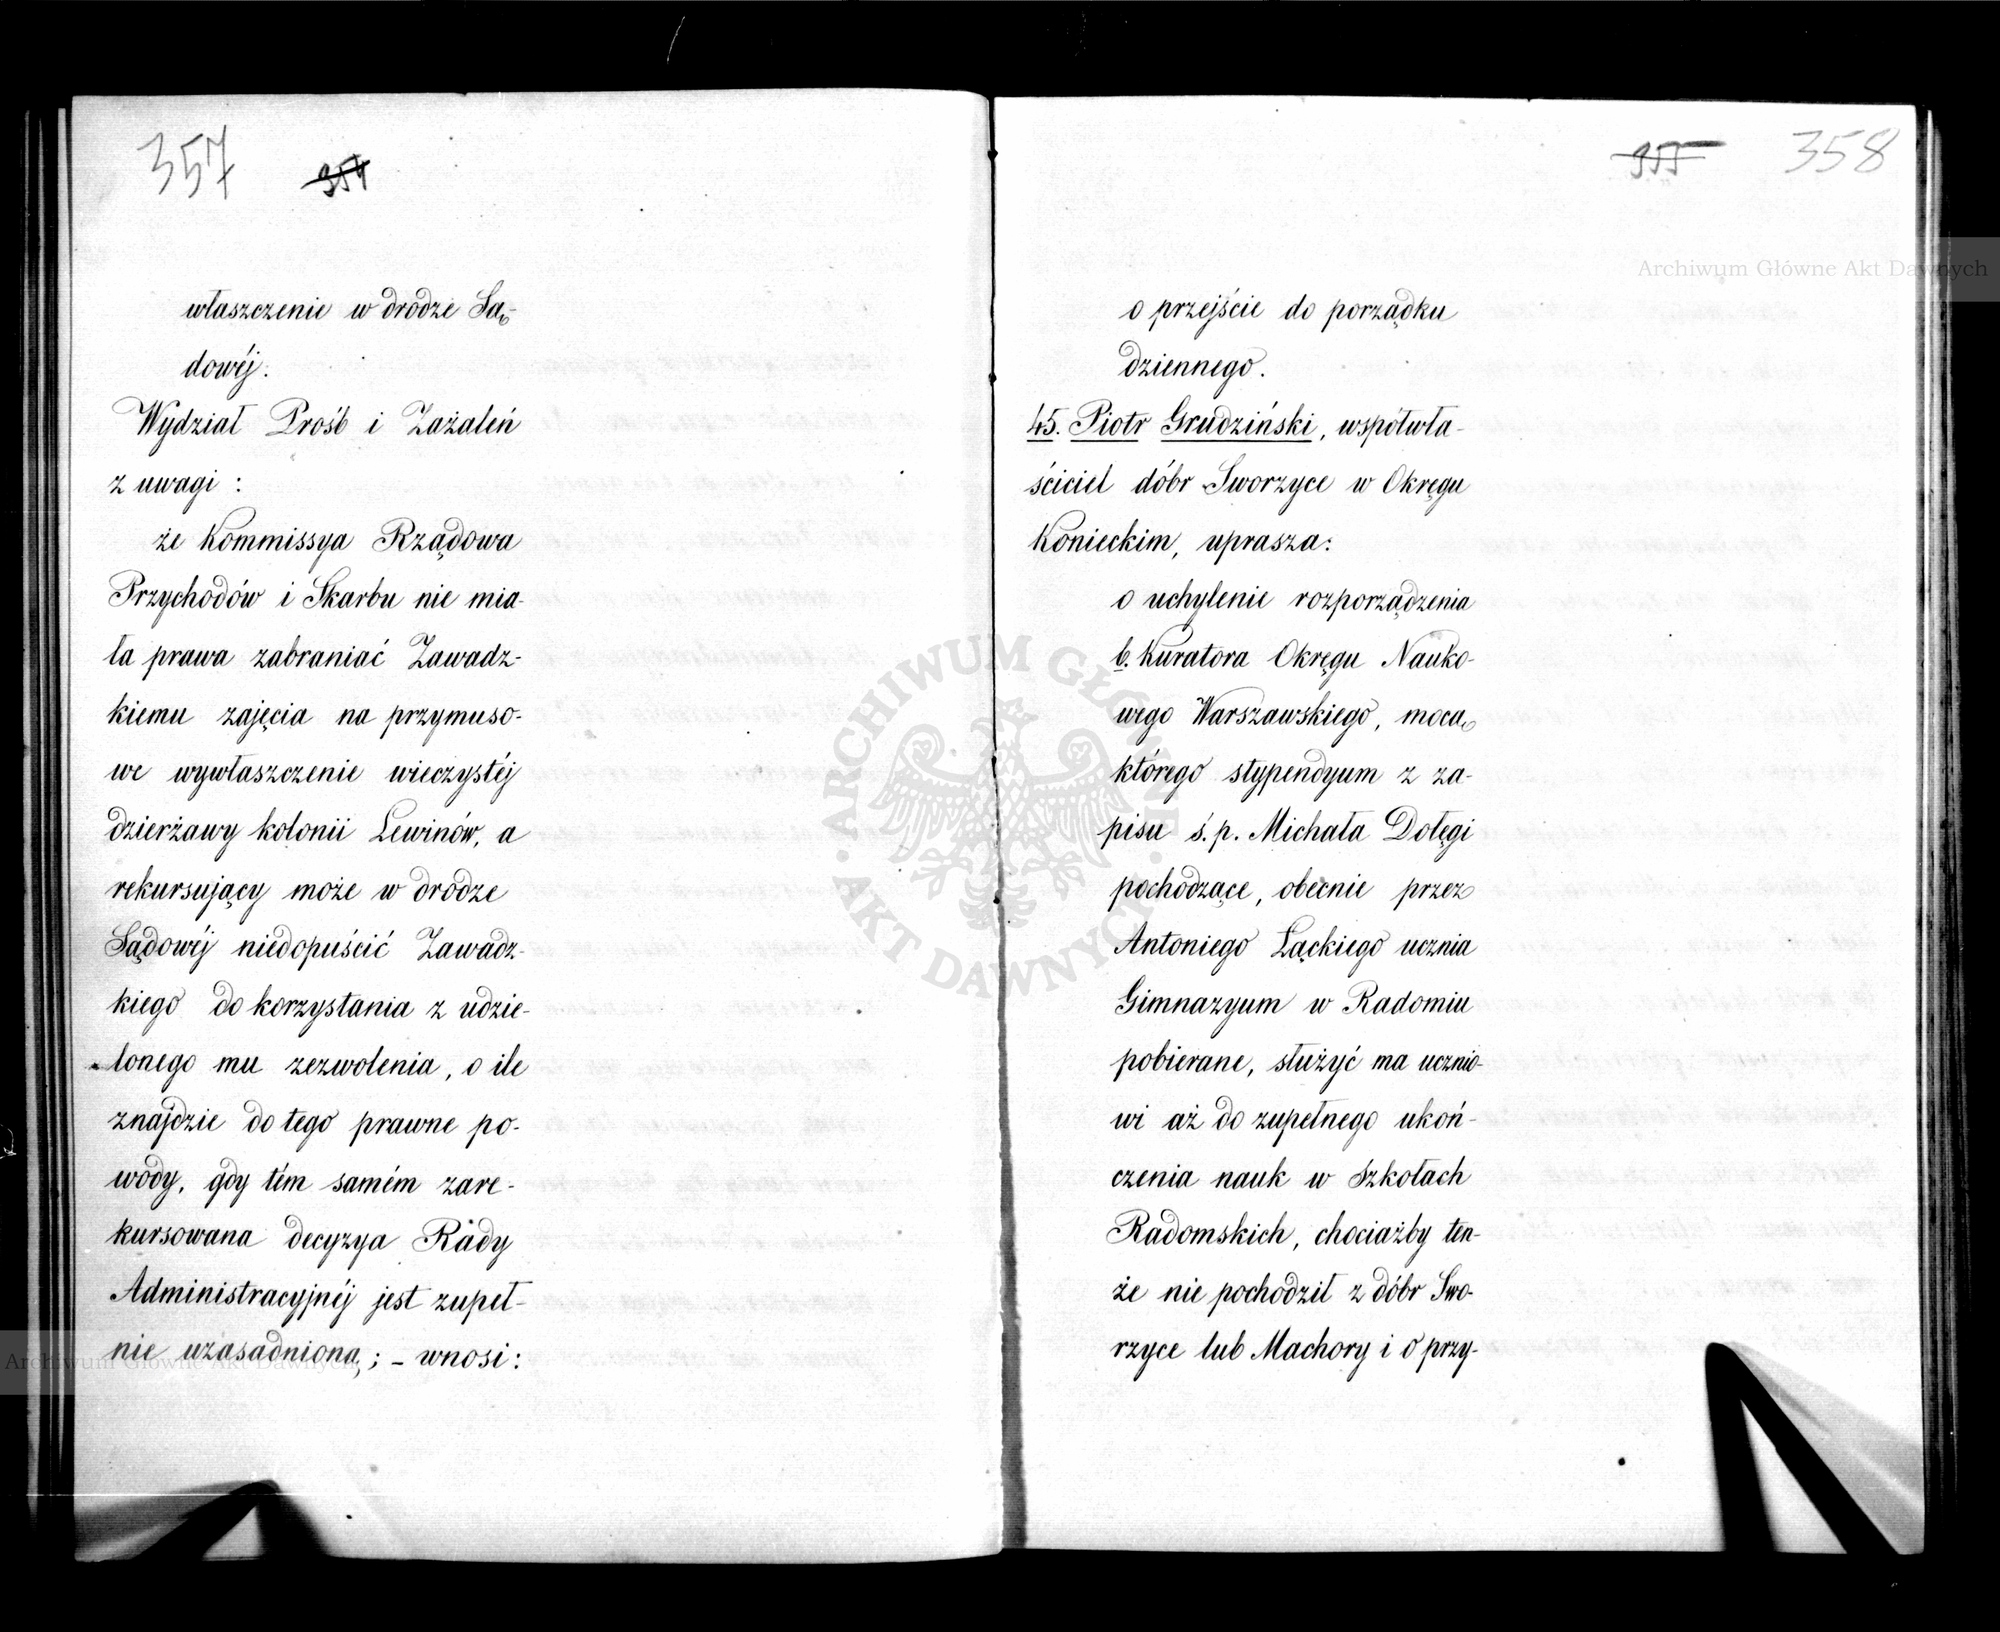 357 354
własz­czenie w drodze Są-
dowéj.
Wydział Prośb i Zażaleń
z uwagi :
że Kommissya Rządowa
Przychodów i Skarbu nie mia-
ła prawa zabraniać Zawadz-
kiemu zajęcia na przymuso-
we wywłaszczenie wieczystéj
dzierżawy kolonii Lewinów, a
rekursujący może w drodze
Sądowéj niedopuścić Zawadz-
kiego do korzystania z udzie-
lonego mu zezwolenia, o ile
znajdzie do tego prawne po-
wody, gdy tém samém zare-
kursowana decyzya Rady
Administracyjnéj jest zupeł-
nie uzasadnioną; – wnosi:
355 358
o przejście do porządku
dziennego.
45. Piotr Grudziński, współwła-
ściciel dóbr Sworzyce w Okręgu
Konieckim, uprasza:
o uchylenie rozporządzenia
b. Kuratora Okręgu Nauko-
wego Warszawskiego, mocą
którego stypendyum z za-
pisu ś. p. Michała Dołęgi
pochodzące, obecnie przez
Antoniego Łąckiego ucznia
Gimnazyum w Radomiu
pobierane, służyć ma ucznio-
wi aż do zupełnego ukoń-
czenia nauk w Szkołach
Radomskich, chociażby ten-
że nie pochodził z dóbr Swo-
rzyce lub Machory i o przy-
Archiwum Główne Akt Dawnych
ARCHIWUM GŁÓWNE
AKT DAWNYCH
Archiwum Główne Akt Dawnych